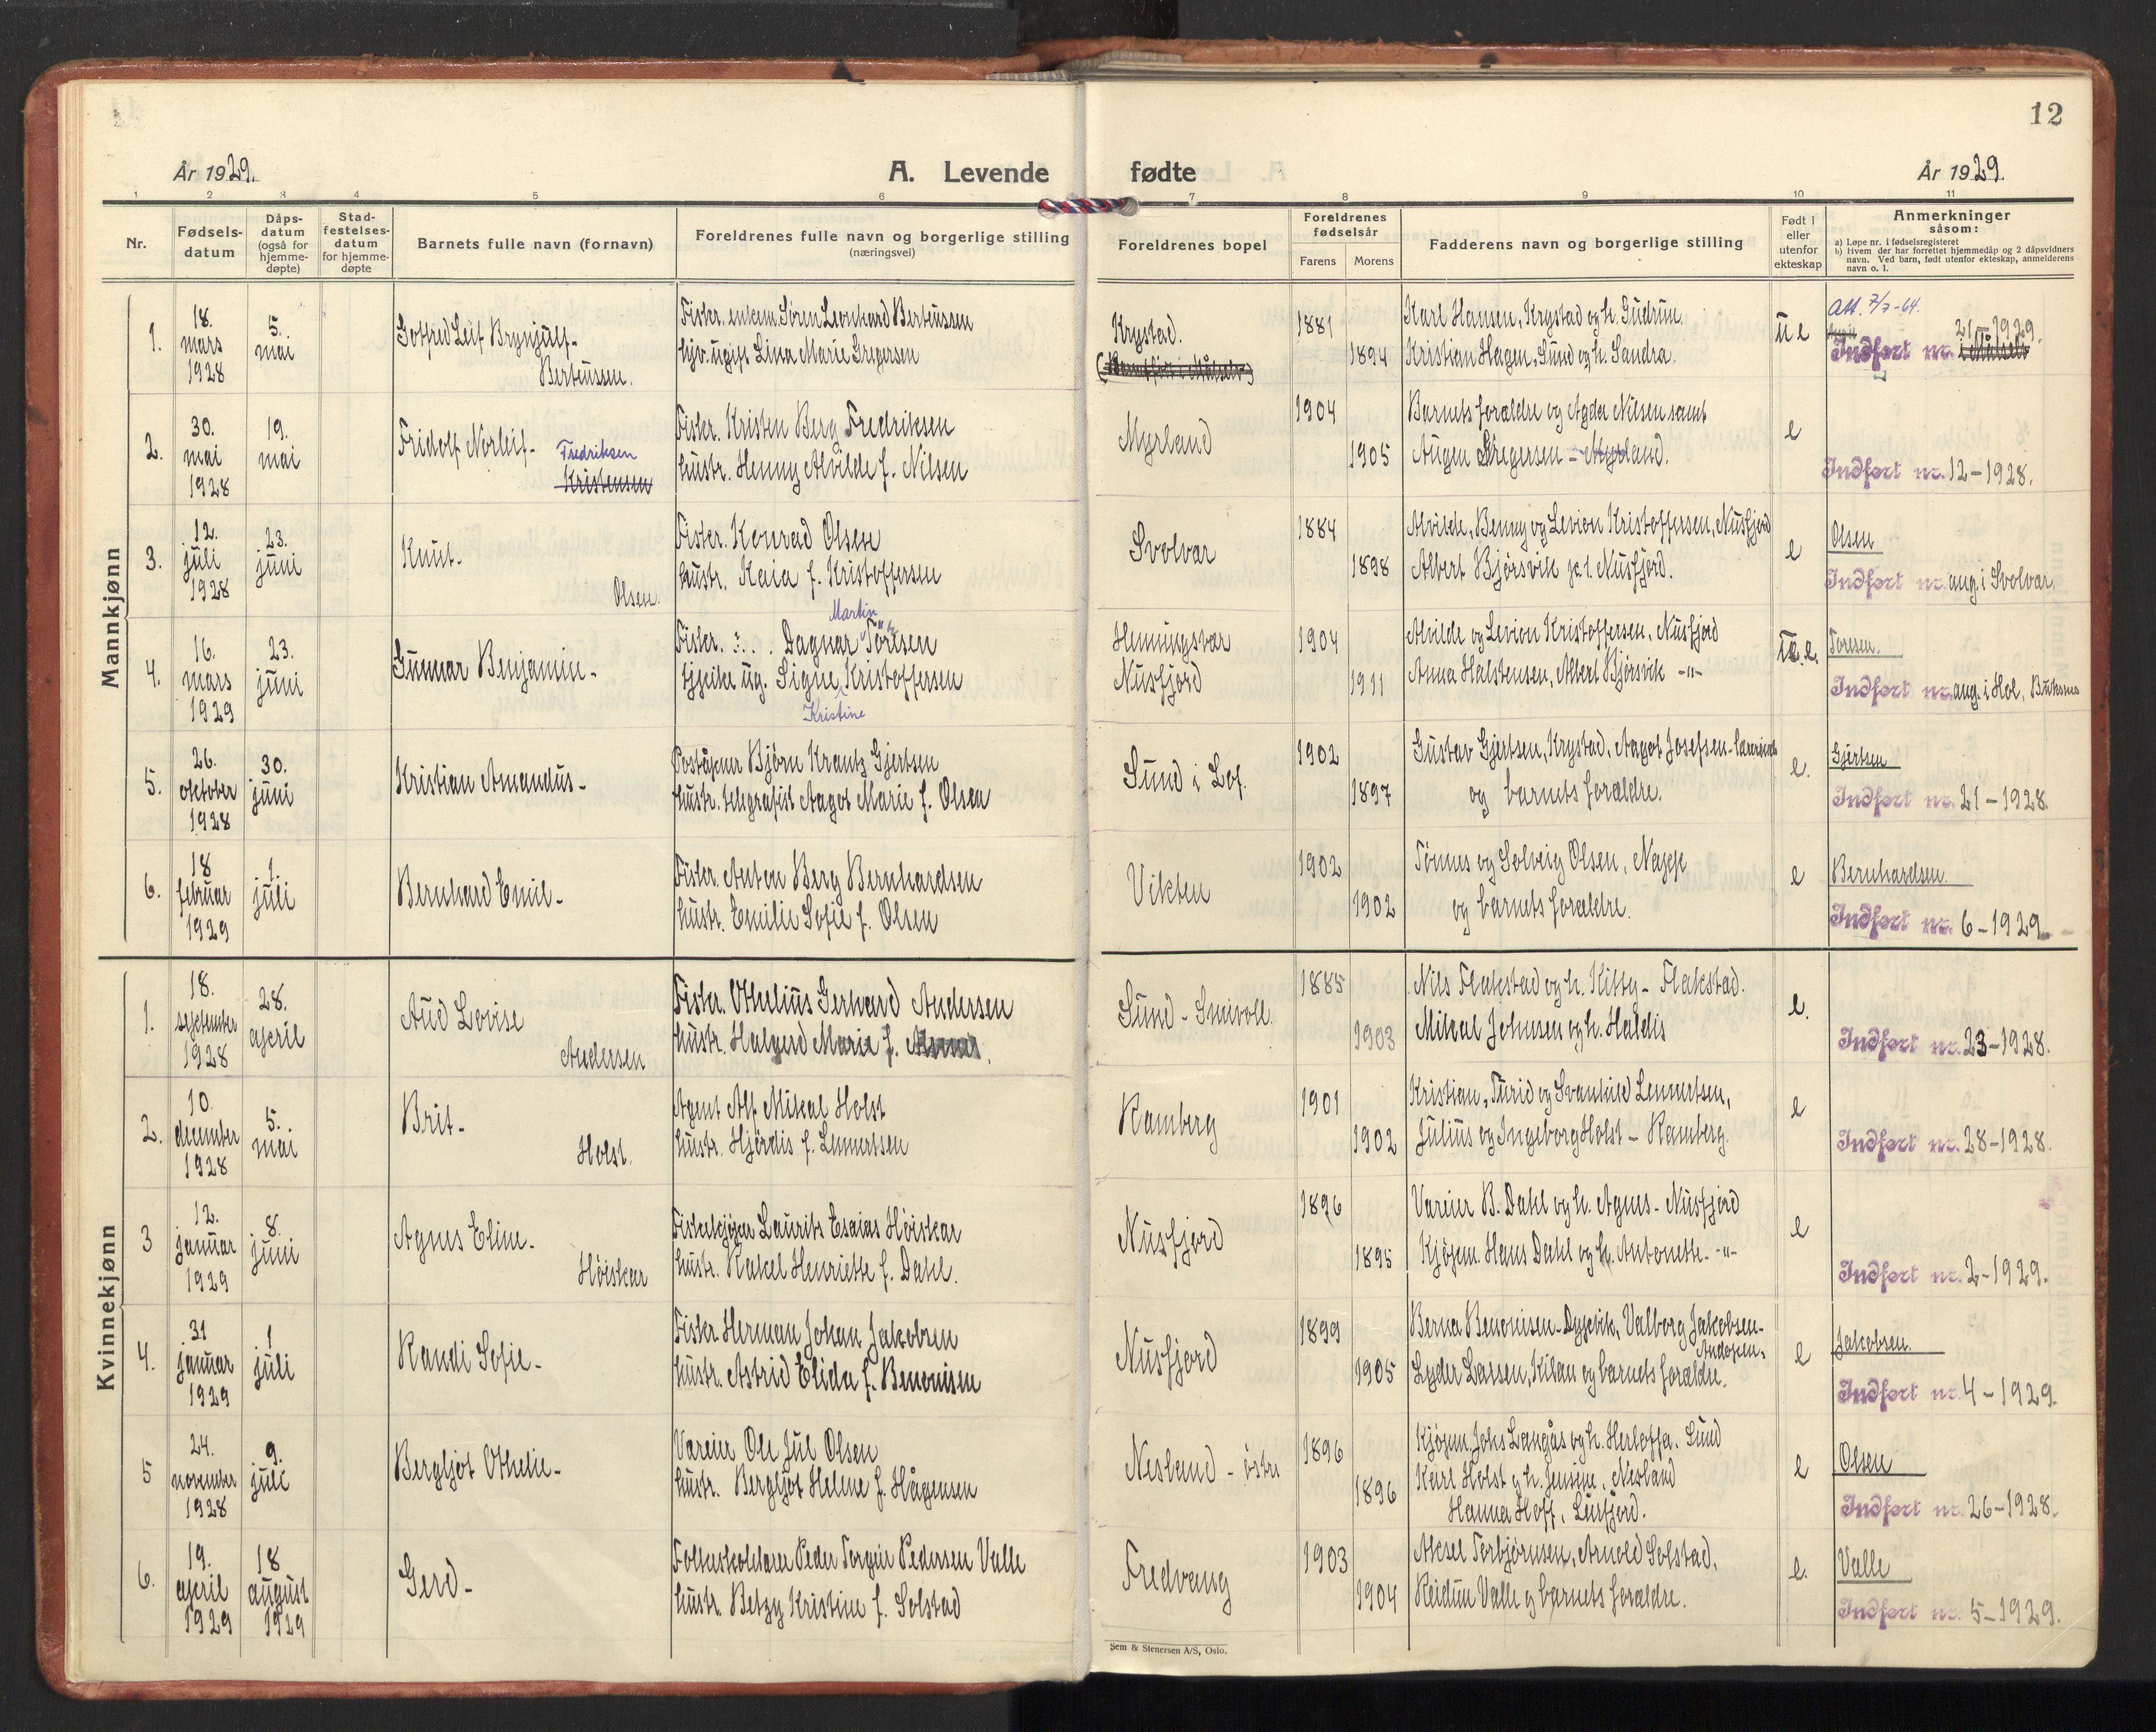 12
År 1929.
A. Levende fødte
År 1929.
1 2 3 4 5 6 7 8 9 10 11
Nr.
Fødsels-
datum
Dåps-
datum
(også for
hjemme-
døpte)
Stad-
festelses-
datum
for hjemme-
døpte
Barnets fulle navn (fornavn)
Foreldrenes fulle navn og borgerlige stilling
(næringsvei)
Foreldrenes bopel
Foreldrenes
fødselsår
Farens Morens
Fadderens navn og borgerlige stilling
Født i
eller
utenfor
ekteskap
Anmerkninger
såsom:
a) Løpe nr. i fødselsregisteret
b) Hvem der har forrettet hjemmedåp og 2 dåpsvidners
navn. Ved barn, født utenfor ekteskap, anmelderens
navn o. l.
Mannkjønn
1.
18.
mars
1928
5.
mai
Gotfred Leif Brynjulf-
Bertussen.
Fisker. enkem. Sören Leonhard Bertussen
tjv. ugift Lina Marie Gregersen
Krystad.
1881
1894
Karl Hansen, Krystad og h. Gudrun
Kristian Hagen, Sund og h. Sandra.
u e
Att. 7/7-64.
21-1929.
Indført nr.
2.
30.
mai
1928
19.
mai
Fridolf Norleif-
Fredriksen
Kristensen
Fisker. Kristen Berg Fredriksen
hustr. Henny Alvilde f. Nilsen
Myrland
1904
1905
Barnets forældre og Agda Nilsen samt
Augen Gregersen - Myrland.
e
Indført nr. 12-1928.
3.
12.
juli
1928
23.
juni
Knut-
Olsen.
Fisker. Konrad Olsen
hustr. Kaia f. Kristoffersen
Svolvær
1884
1898
Alvilde, Benny og Levion Kristoffersen, Nusfjord
Albert Bjørsvik p.t. Nusfjord.
e
Olsen
Indført nr. ang. i Svolvær.
4.
16.
mars
1929
23.
juni
Gunnar Benjamin-
Martin
Fisker. Dagnar Toresen
tjpike ug. Signe Kristoffersen
Kristine
Henningsvær
Nusfjord
1904
1911
Alvilde og Levion Kristoffersen, Nusfjord
Anna Halstensen, Albert Bjørsvik -"-
u.e.
Toresen.
Indført nr. ang. i Hol, Buksnes
5.
26.
oktober
1928
30.
juni
Kristian Amandus-
Poståpner Bjørn Krantz Gjertsen
hustr. telegrafist Aagot Marie f. Olsen
Sund i Lof.
1902
1897
Gustav Gjertsen, Krystad, Aagot Josefsen - lærerinde
og barnets forældre.
e.
Gjertsen
Indført nr. 21-1928.
6.
18
februar
1929
1.
juli
Bernhard Emil-
Fisker. Anton Berg Bernhardsen
hustr. Emilie Sofie f. Olsen
Vikten
1902
1902
Tönnes og Solveig Olsen, Napp
og barnets forældre.
e
Bernhardsen.
Indført nr. 6-1929.
Kvinnekjønn
1.
18.
september
1928
28.
april
Aud Lovise
Andersen
Fisker. Othelius Gerhard Andersen
hustr. Halgerd Marie f.
Sund - Smivoll.
1885
1903
Nils Flakstad og h. Kitty - Flakstad.
Mikal Johnsen og h. Haldis
e.
Indført nr. 23-1928.
2.
10.
december
1928
5.
mai
Brit-
Holst.
Agent Alf Mikal Holst
hustr. Hjördis f. Lennertsen
Ramberg
1901
1902
Kristian, Turid og Svanhild Lennertsen,
Julius og Ingeborg Holst - Ramberg.
e
Indført nr. 28-1928.
3
12.
januar
1929
8.
juni
Agnes Eline-
Höiskar
Fiskekjöper Laurits Esaias Höiskar
hustr. Rakel Henriette f. Dahl.
Nusfjord
1896
1895
Væreier B. Dahl og h. Agnes - Nusfjord
Kjøpm. Hans Dahl og h. Antonette -"-
e
Indført nr. 2-1929.
4.
31
januar
1929
1
juli
Randi Sofie-
Fisker Herman Johan Jakobsen
hustr. Astrid Elida f. Benonisen
Nusfjord
1899
1905
Berna Benonisen - Dypvik, Valborg Jakobsen-
Andopen,
Lyder Larsen, Kilan og barnets forældre.
e
Jakobsen.
Indført nr. 4-1929.
5
24.
november
1928
9.
juli
Bergljot Othelie-
Væreier Ole Jul Olsen
hustr. Bergljot Helene f. Hågensen
Nesland - östre
1896
1896
Kjöpm. Johs Langås og h. Herloffa. Sund
Karl Holst og h. Jensine, Nesland
Hanna Hoff, Sörfjord.
e
Olsen
Indført nr. 26-1928.
6.
19.
april
1929
18
august
1929
Gerd-
Folkeskolelærer Peder Torgeir Pedersen Valle
hustr. Betzy Kristine f. Solstad
Fredvang
1903
1904
Aksel Torbjørnsen, Arnold Solstad,
Reidun Valle og barnets forældre.
e.
Valle
Indført nr. 5-1929.
Sem & Stenersen A/S, Oslo.